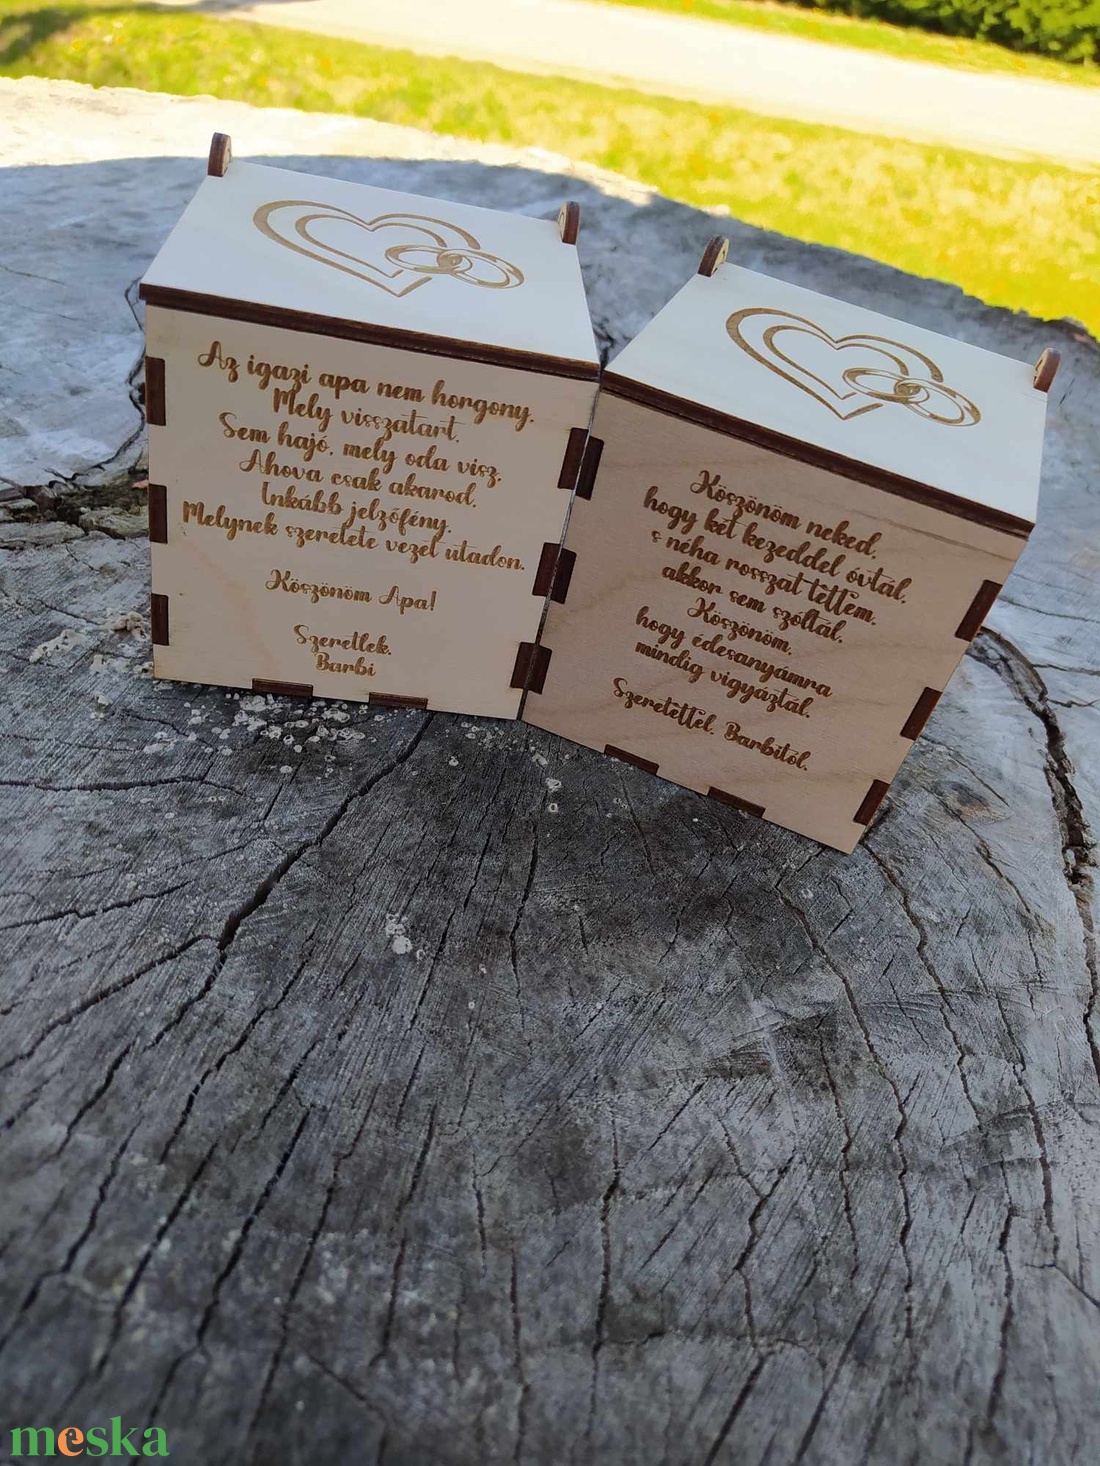 Az igazi apa nem horgony.
Mely visszatart.
Sem hajó, mely oda visz.
Ahova csak akarod.
Inkább jelzőfény.
Melynek szeretete vezet utadon.
Köszönöm Apa!
Szeretlek.
Barbi
Köszönöm neked,
hogy két kezeddel óvtál,
s néha rosszat tettem,
akkor sem szóltál.
Köszönöm,
hogy édesanyámra
mindig vigyáztál.
Szeretettel, Barbitól.
meska